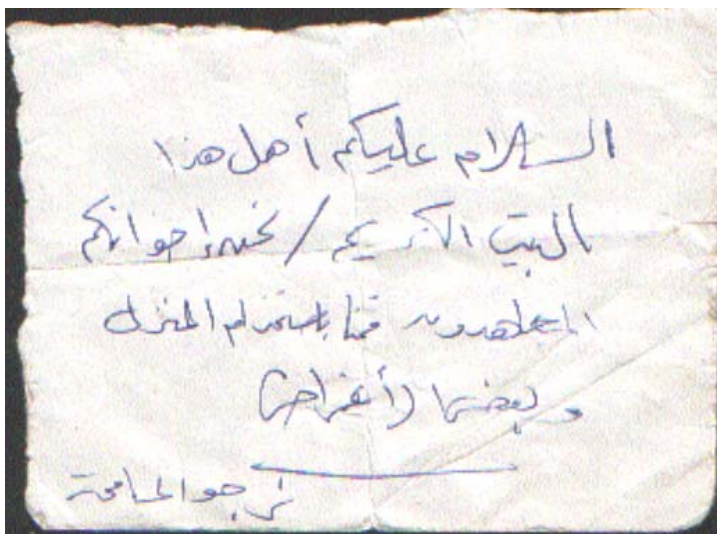 السلام عليكم أهل هذا
البيت الكريم / نحن إخوانكم
المجاهدون قمنا باستخدام المنزل
وبعض (أغراض)
نرجو المسامحة